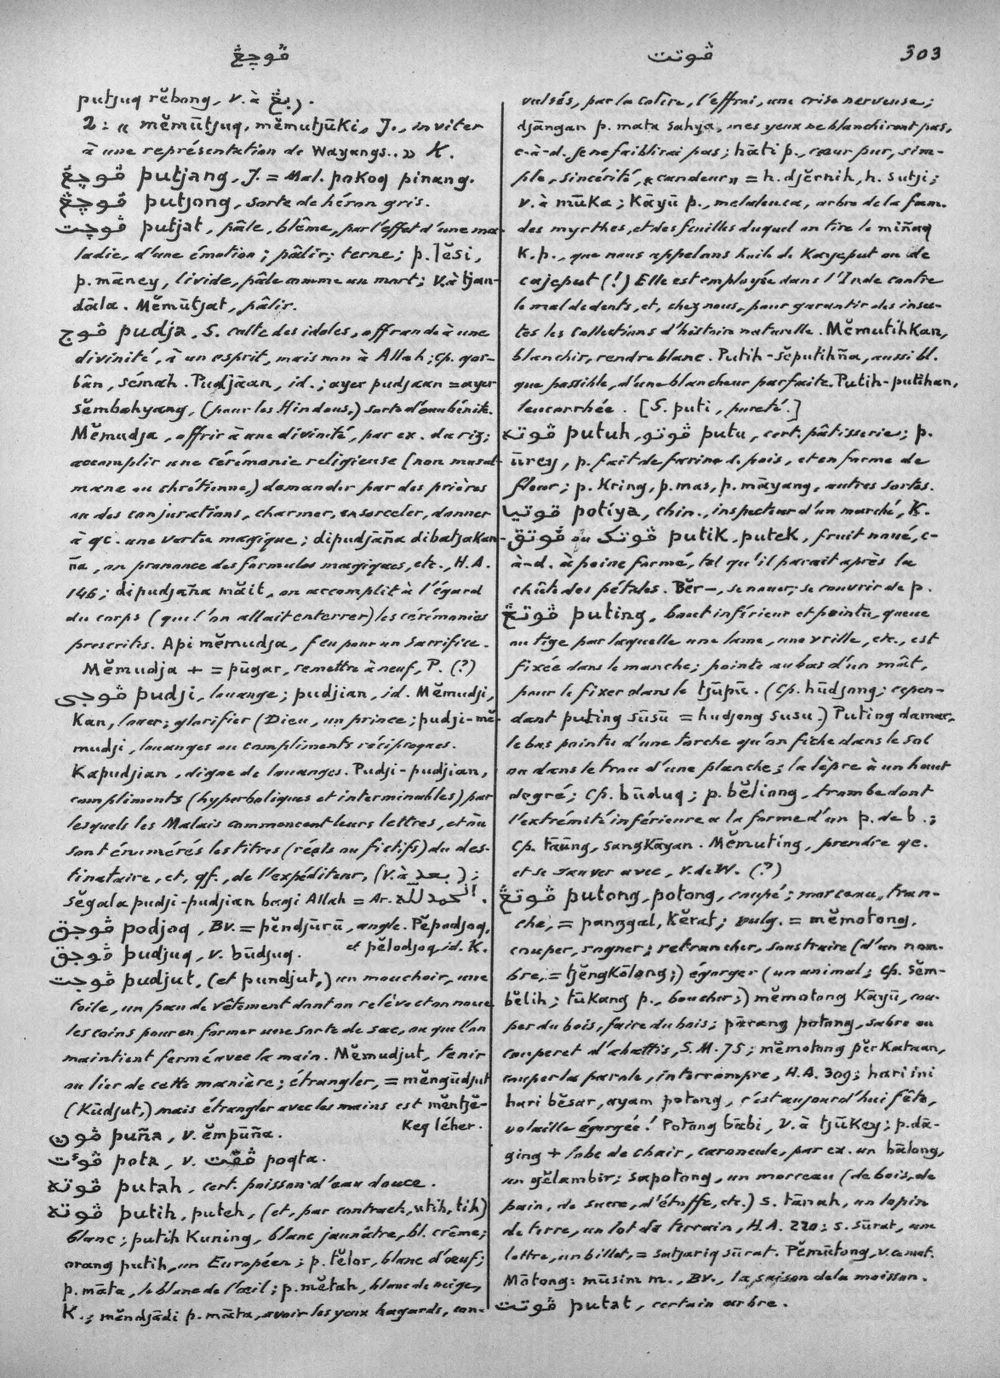 ڤوچڠ
ڤوتت
303
putjuq rĕbong, v. à ربڠ.
2: « mĕmūtjuq, mĕmutjūki, J., inviter
à une représentation de Wayangs.. » K.
ڤوچڠ putjang, J. = Mal. pokoq pinang.
ڤوچڠ putjong, sorte de héron gris.
ڤوچت putjat, pâle, blême, par l'effet d'une ma-
ladie, d'une émotion; pâlir; terne; p. lĕsi,
p. māney, livide, pâle comme un mort; v. à tjan-
dāla. Mĕmūtjat, pâlir.
ڤوج pudja, S. culte des idoles, offrande à une
divinité, à un esprit, mais non à Allah; cp. qor-
bân, sémah. Pudjāan, id.; ayer pudjaan = ayer
sĕmbahyang, (pour les Hindous,) sorte d'eau bénite.
Mĕmudja, offrir à une divinité, par ex. du riz;
accomplir une cérémonie religieuse (non musul-
mane ou chrétienne,) demander par des prières
ou des conjurations, charmer, ensorceler, donner
à qc. une vertu magique; dipudjāña dibatjakan-
ña, on prononce des formules magiques, etc., H.A.
146; dipudjaña māit, on accomplit à l'égard
du corps (que l'on allait enterrer) les cérémonies
prescrites. Api mĕmudja, feu pour un sacrifice.
Mĕmudja + = pūgar, remettre à neuf, P. (?)
ڤوجى pudji, louange; pudjian, id. Mĕmudji,
Kan, louer; glorifier (Dieu, un prince; pudji-mĕ-
mudji, louanges ou compliments réciproques.
Kapudjian, digne de louanges. Pudji-pudjian,
compliments (hyperboliques et interminables) par
lesquels les Malais commencent leurs lettres, et où
sont énumérés les titres (réels ou fictifs) du des-
tinataire, et, qf., de l'expéditeur, (v. à بعد);
sĕgala pudji-pudjian bagi Allah = Ar. الحمد لله.
ڤوجق podjoq, Bv. = pĕndjūrū, angle. Pĕpodjoq,
ڤوجق pudjuq, v. būdjuq. et pĕlodjoq, id. K.
ڤوجت pudjut, (et pundjut,) un mouchoir, une
toile, un pan de vêtement dont on relève et on noue
les coins pour en former une sorte de sac, ou que l'on
maintient fermé avec la main. Mĕmudjut, tenir
ou lier de cette manière; étrangler, = mĕngūdjut
(Kūdjut,) mais étrangler avec les mains est mĕntjĕ-
Keq léher.
ڤون puña, v. ĕmpūña.
ڤوت pota, v. ڤقت poqta.
ڤوته putah, cert. poisson d'eau douce.
ڤوته putih, puteh, (et, par contract, utih, tih)
blanc; putih Kuning, blanc jaunâtre, bl. crême;
orang putih, un Européen; p. tĕlor, blanc d'œuf;
p. māta, le blanc de l'œil; p. mĕtah, blanc de neige,
K.; mĕndjādi p. māta, avoir les yeux hagards, con-
vulsés, par la colère, l'effroi, une crise nerveuse;
djāngan p. mata sahya, mes yeux ne blanchiront pas,
c-à-d. je ne faiblirai pas; hāti p., cœur pur, sim-
ple, sincérité, « candeur » = h. djĕrnih, h. sutji;
v. à mūka; Kāyū p., melaleuca, arbre de la fam.
des myrthes, et des feuilles duquel on tire le miñaq
K. p., que nous appelons huile de Kayeput ou de
cajeput (!) Elle est employée dans l'Inde contre
le mal de dents, et, chez nous, pour garantir des insec-
tes les collections d'histoire naturelle. Mĕmutihkan,
blanchir, rendre blanc. Putih-sĕputihña, aussi bl.
que possible, d'une blancheur parfaite. Putih-putihan,
leucorrhée. [S. puti, pureté.]
ڤوته putuh, ڤوتو putu, cert. pâtisserie; p.
ūrey, p. fait de farine de pois, et en forme de
fleur; p. Kring, p. mas, p. māyang, autres sortes.
ڤوتيا potiya, chin., inspecteur d'un marché, K.
ڤوتق ou ڤوتک putik, putek, fruit noué, c-
à-d. à peine formé, tel qu'il parait après la
chûte des pétales. Bĕr—, se nouer, se couvrir de p.
ڤوتڠ puting, bout inférieur et pointu, queue
ou tige par laquelle une lame, une vrille, etc., est
fixée dans le manche; pointe au bas d'un mât,
pour le fixer dans le tjūpū. (Cp. hūdjong; cepen-
dant puting sūsū = hudjong susu.) Puting damar,
le bas pointu d'une torche qu'on fiche dans le sol
ou dans le trou d'une planche; la lèpre à un haut
degré; cp. būduq; p. bĕliong, trombe dont
l'extrémité inférieure a la forme d'un p. de b.;
cp. tāūng, sangkāyan. Mĕmuting, prendre qc.
et se sauver avec, v. de W. (?)
ڤوتڠ putong, potong, coupé; morceau, tran-
che, = panggal, Kĕrat; vulg. = mĕmotong,
couper, rogner; retrancher, soustraire (d'un nom-
bre, = tjĕngkōlong;) égorger (un animal; cp. sĕm-
bĕlih; tūkang p., boucher;) mĕmotong Kāyū, cou-
per du bois, faire du bois; pārang potong, sabre ou
couperet d'abattis, S.M. 75; mĕmotong pĕrkataan,
couper la parole, interrompre, H.A. 309; hari ini
hari bĕsar, ayam potong, c'est aujourd'hui fête,
volaille égorgée! Potong bābi, v. à tjūkey; p. dā-
ging + lobe de chair, caroncule, par ex. un bālong,
un gĕlambir; sapotong, un morceau (de bois, de
pain, de sucre, d'étoffe, etc.) s. tānah, un lopin
de terre, un lot de terrain, H.A. 220; s. sūrat, une
lettre, un billet, = satjariq sūrat. Pĕmūtong, v. ce mot.
Mōtong: mūsim m., Bv., la saison de la moisson.
ڤوتت putat, certain arbre.